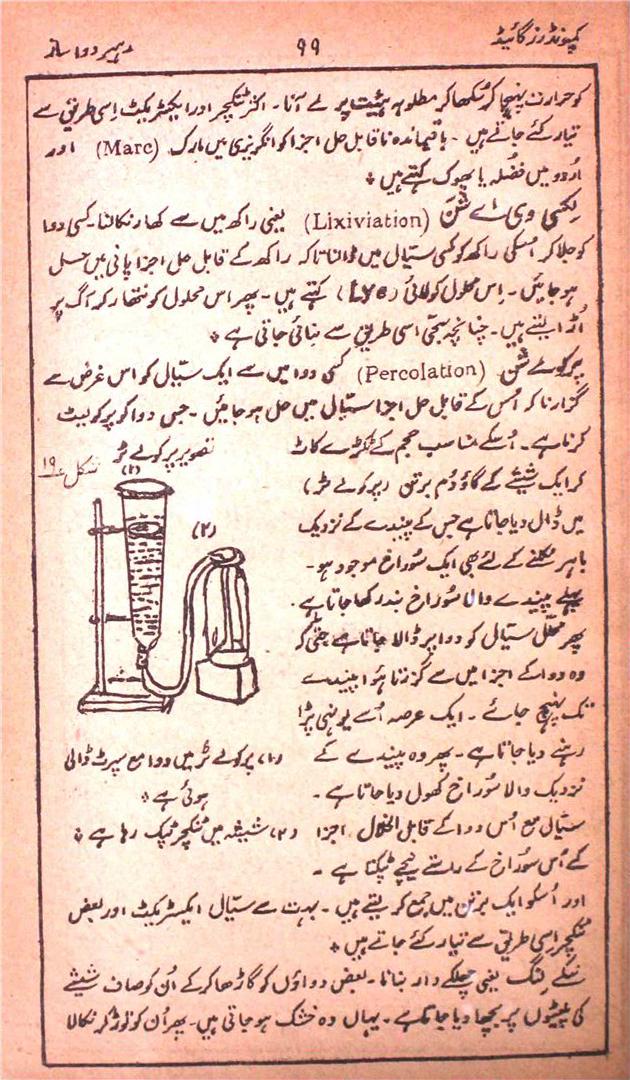 کمپونڈرز گائیڈ
۹۹
رہبر دوا ساز
کو حرارت پہنچا کر سکھا کر مطلوبہ ہیئت پر لے آنا۔ اکثر ٹنکچر اور ایکٹریکٹ اسی طریق سے
تیار کئے جاتے ہیں۔ باقیماندہ ناقابل حل اجزا کو انگریزی میں مارک (Marc) اور
اردو میں فضلہ یا پھوک کہتے ہیں *
لِکسی وی اے شَن (Lixiviation) یعنی راکھ میں سے کھار نکالنا۔ کسی دوا
کو جلا کر اسکی راکھ کو کسی سیال میں ڈالنا تاکہ راکھ کے قابل حل اجزا پانی میں حل
ہو جائیں۔ اس محلول کو لائی (Lye) کہتے ہیں۔ پھر اس محلول کو نتھار کر آگ پر
اڑا لیتے ہیں۔ چنانچہ سجی اسی طریق سے بنائی جاتی ہے *
پرکولے شن (Percolation) کسی دوا میں سے ایک سیال کو اس غرض سے
گزارنا کہ اُس کے قابل حل اجزا سیال میں حل ہو جائیں۔ جس دوا کو پرکولیٹ
کرنا ہے۔ اُسکے مناسب حجم کے ٹکڑے کاٹ
کر ایک شیشے کے گاؤ دُم برتن (پرکولے ٹر)
میں ڈال دیا جاتا ہے جس کے پیندے کے نزدیک
باہر نکلنے کے لئے بھی ایک سُوراخ موجود ہو۔
پہلے پیندے والا سُوراخ بند رکھا جاتا ہے۔
پھر محلل سیال کو دوا پر ڈالا جاتا ہے حتیٰ کہ
وہ دوا کے اجزا میں سے گزرتا ہوا پیندے
تک پہنچ جائے۔ ایک عرصہ اُسے یونہی پڑا
رہنے دیا جاتا ہے۔ پھر وہ پیندے کے
نزدیک والا سُوراخ کھول دیا جاتا ہے۔
سیال مع اُس دوا کے قابل انحلال اجزا
کے اُس سوراخ کے راستے نیچے ٹپکتا ہے۔
تصویر پرکولے ٹر
شکل ۱۹
(۱)
(۲)
(۱) پرکولے ٹر میں دوا مع سپرٹ ڈالی
ہوئی ہے *
(۲) شیشہ میں ٹنکچر ٹپک رہا ہے *
اور اُسکو ایک برتن میں جمع کر لیتے ہیں۔ بہت سے سیال ایکسٹریکٹ اور بعض
ٹنکچر اسی طریق سے تیار کئے جاتے ہیں *
سکے لنگ یعنی چھلکے دار بنانا۔ بعض دواؤں کو گاڑھا کر کے اُن کو صاف شیشے
کی پلیٹوں پر بچھا دیا جاتا ہے۔ یہاں وہ خشک ہو جاتی ہیں۔ پھر اُن کو توڑ کر نکالا